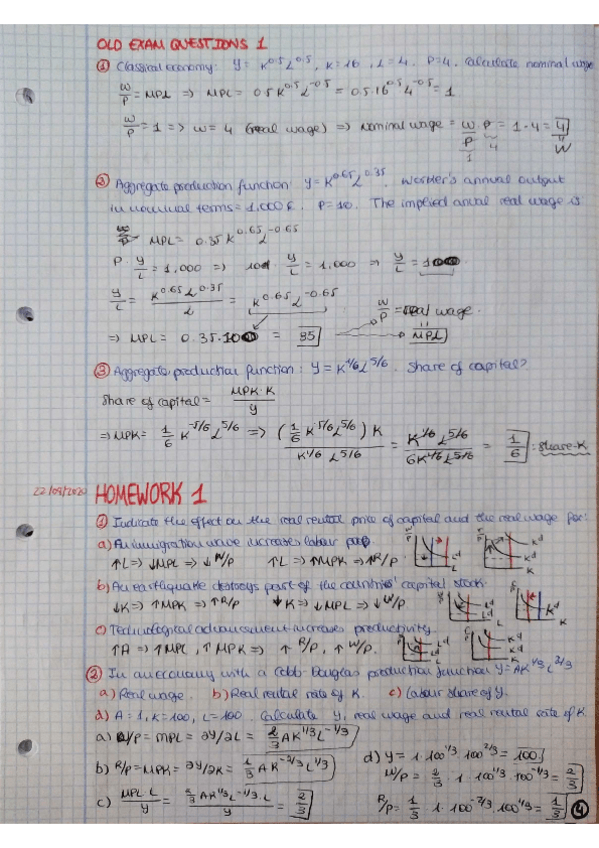 OLD EXAM QUESTIONS 1
① Classical economy: Y = K^0.5 L^0.5, K=16, L=4. P=4. Calculate nominal wage
W/P = MPL => MPL = 0.5 K^0.5 L^-0.5 = 0.5·16^0.5 4^-0.5 = 1
W/P = 1 => W = 4 (real wage) => Nominal wage = W/P · P = 1·4 = 4
1 4 W
② Aggregate production function Y = K^0.65 L^0.35. Worker's annual output
in nominal terms = 1,000€. P=10. The implied annual real wage is
MPL = 0.35 K^0.65 L^-0.65
P · Y/L = 1,000 => 10 · Y/L = 1,000 => Y/L = 100
Y/L = K^0.65 L^0.35 / L = K^0.65 L^-0.65
W/P = real wage.
=> MPL = 0.35·100 = 35 MPL
③ Aggregate production function: Y = K^1/6 L^5/6. Share of capital?
Share of capital = MPK·K / Y
=> MPK = 1/6 K^-5/6 L^5/6 => (1/6 K^-5/6 L^5/6) K / K^1/6 L^5/6 = K^1/6 L^5/6 / 6K^1/6 L^5/6 = 1/6 : share-K
22/09/2020 HOMEWORK 1
① Indicate the effect on the real rental price of capital and the real wage for:
a) An immigration wave increases labour pop
↑L => ↓MPL => ↓W/P ↑L => ↑MPK => ↑R/P. L^d L K^d K
b) An earthquake destroys part of the countries' capital stock.
↓K => ↑MPK => ↑R/P ↓K => ↓MPL => ↓W/P L^d L K^d K
c) Technological advancement increases productivity
↑A => ↑MPL, ↑MPK => ↑R/P, ↑W/P. L^d L K^d K
② In an economy with a Cobb-Douglas production function Y = AK^1/3 L^2/3
a) Real wage. b) Real rental rate of K. c) Labour share of Y.
d) A=1, K=100, L=100. Calculate Y, real wage and real rental rate of K
a) W/P = MPL = ∂Y/∂L = 2/3 AK^1/3 L^-1/3
b) R/P = MPK = ∂Y/∂K = 1/3 AK^-2/3 L^2/3
c) MPL·L / Y = 2/3 AK^1/3 L^-1/3 · L / Y = 2/3
d) Y = 1·100^1/3 · 100^2/3 = 100
W/P = 2/3 · 1 · 100^1/3 · 100^-1/3 = 2/3
R/P = 1/3 · 1 · 100^-2/3 · 100^2/3 = 1/3
4